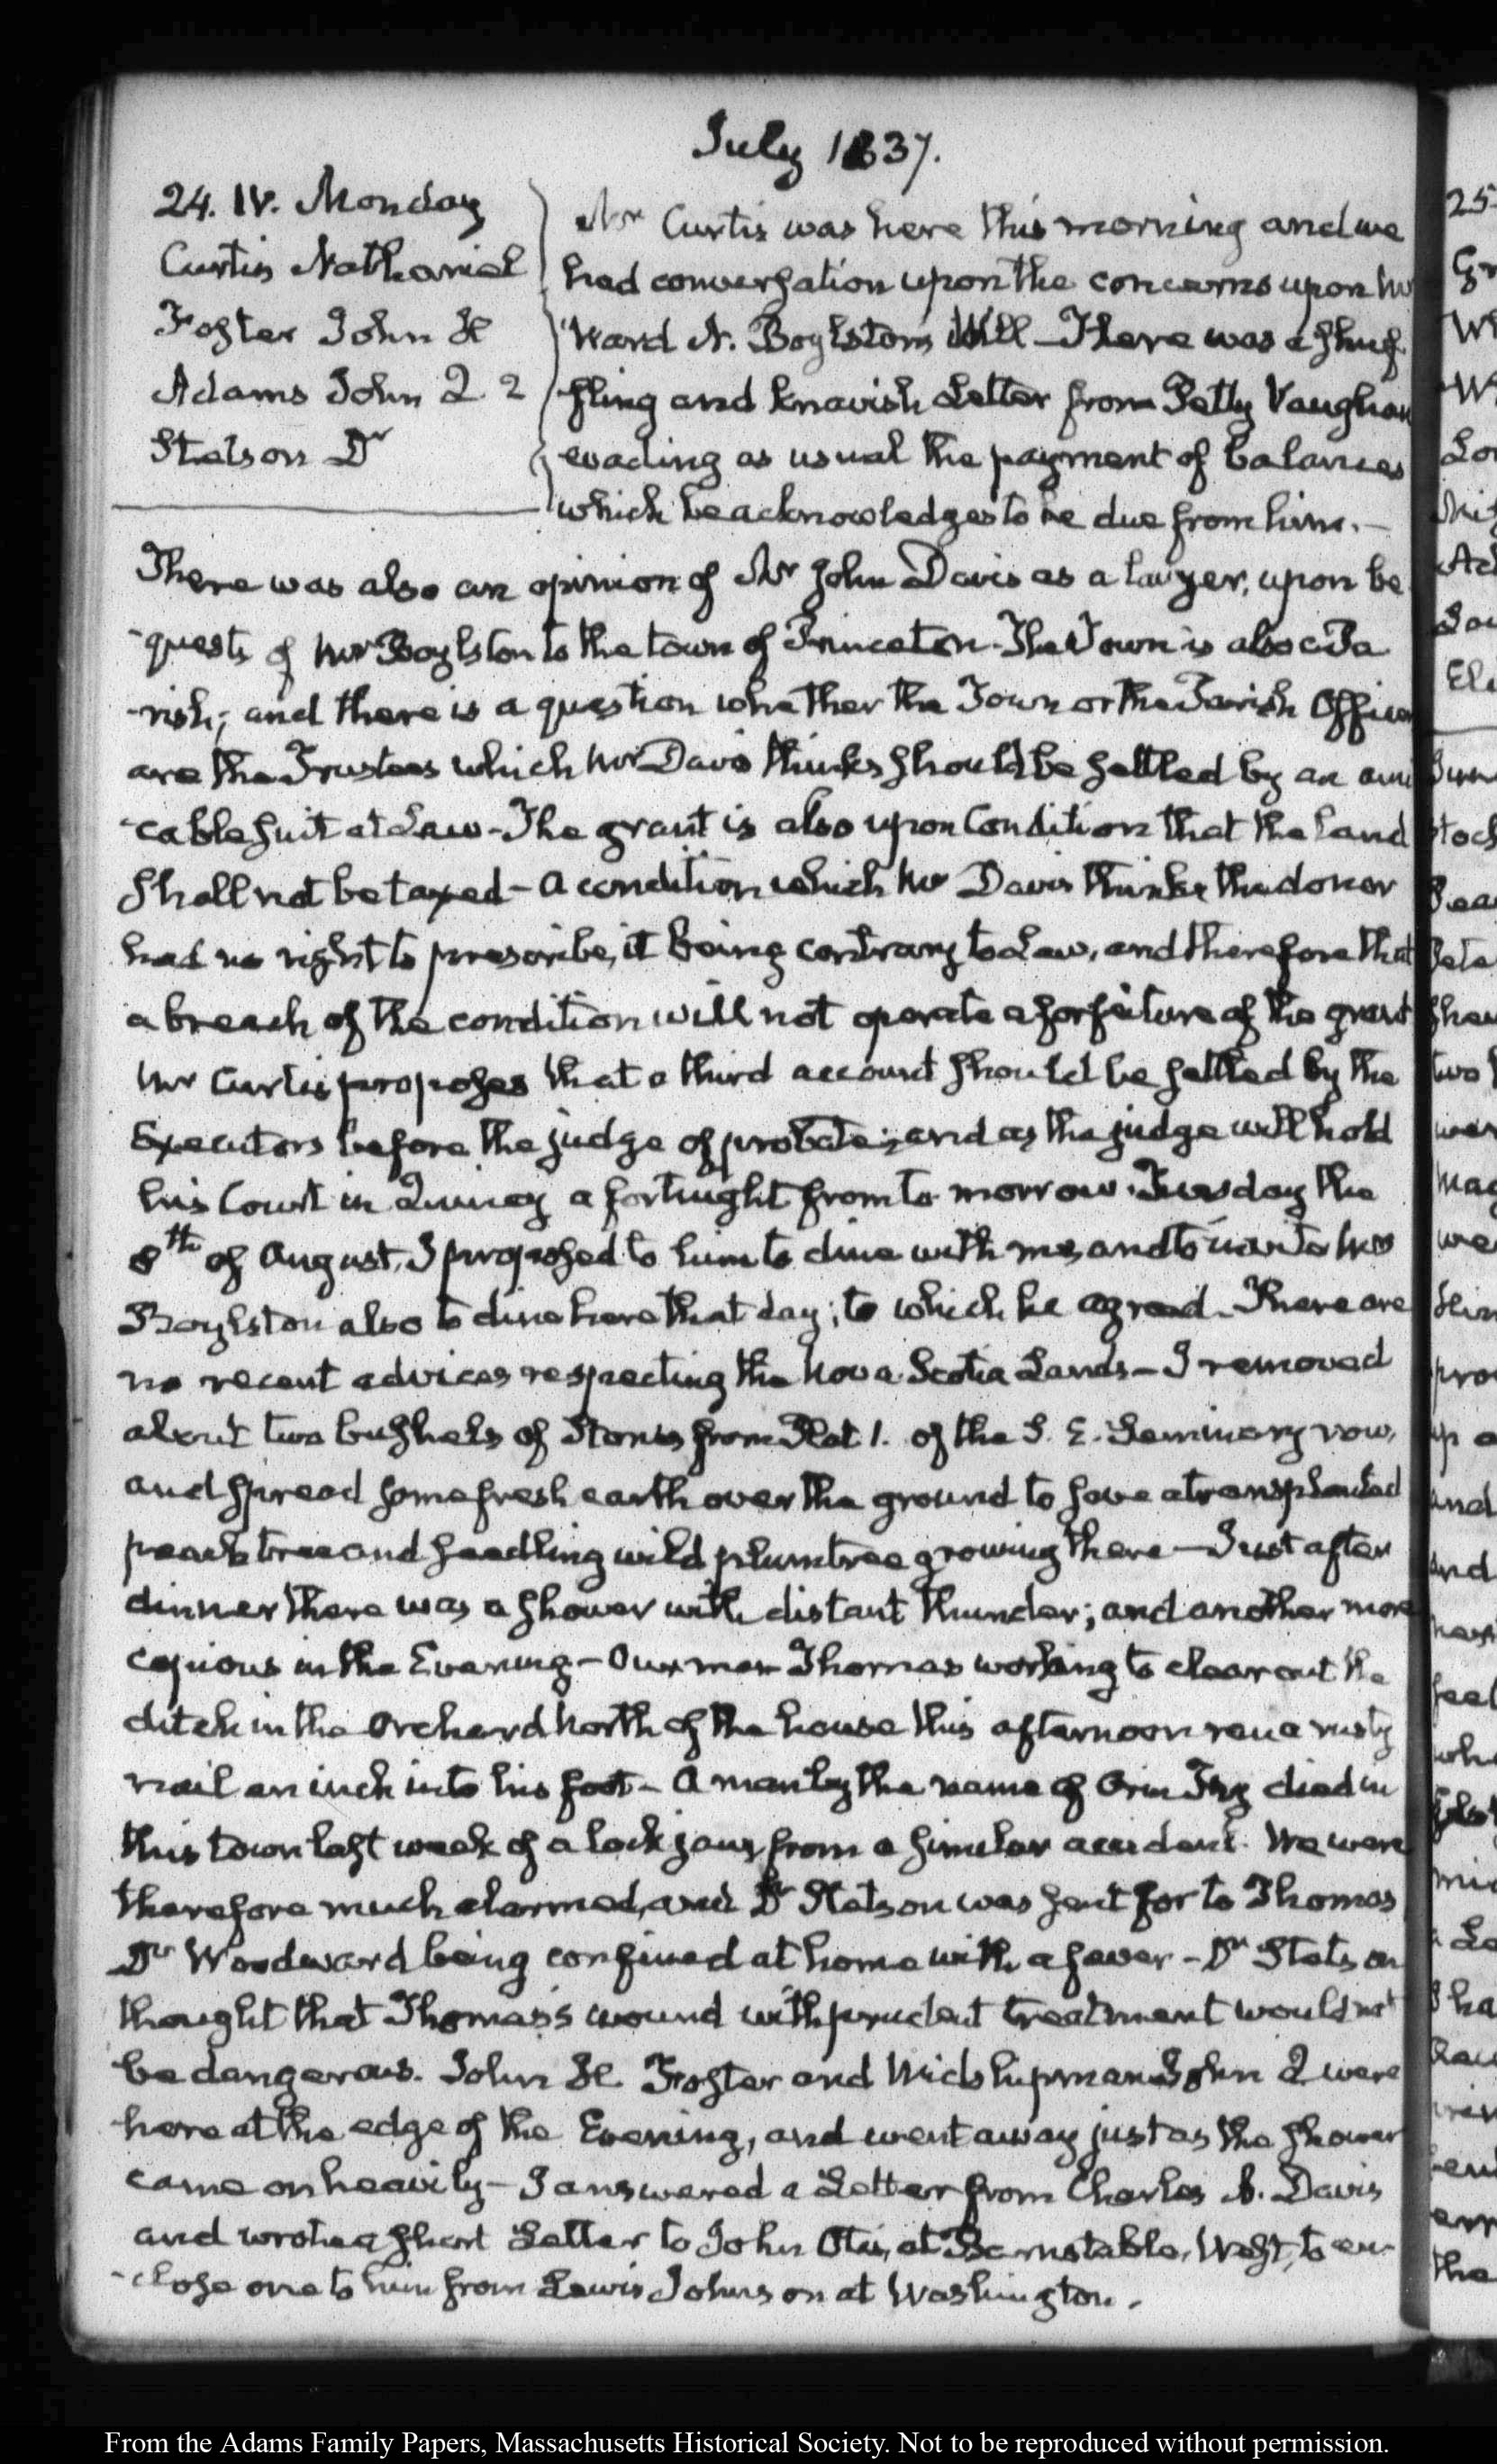 July 1837.
24. IV. Monday
Curtis Nathaniel
Foster John H
Adams John Q. 2
Stetson Dr
Mr Curtis was here this morning and we
had conversation upon the concerns upon
Ward N. Boylston's Will — There was a shuf
fling and knavish Letter from Petty Vaughan
evading as usual the payment of balances
which he acknowledges to be due from him. —
There was also an opinion of Mr John Davis as a lawyer, upon be
-quests of Mr Boylston to the town of Princeton - The Town is also a Pa
-rish; and there is a question whether the Town or the Parish Officers
are the Trustees which Mr Davis thinks should be settled by an ami
-cable suit at Law - The grant is also upon Condition that the land
shall not be taxed — a condition which Mr Davis thinks the donor
had no right to prescribe, it being contrary to Law, and therefore that
a breach of the condition will not operate a forfeiture of the grant
Mr Curtis proposes that a third account should be settled by the
Executors before the judge of probate; and as the judge will hold
his Court in Quincy a fortnight from to-morrow, Tuesday the
8th of August, I proposed to him to dine with me, and to invite Mrs
Boylston also to dine here that day; to which he agreed. There are
no recent advices respecting the Nova Scotia Lands — I removed
about two bushels of Stones from Plat 1. of the S. E. Seminary row,
and spread some fresh earth over the ground to save a transplanted
peach tree and seedling wild plumtree growing there — Just after
dinner there was a shower with distant thunder; and another more
copious in the Evening — Our man Thomas working to clear out the
ditch in the Orchard North of the house this afternoon ran a rusty
nail an inch into his foot — A man by the name of died in
this town last week of a lock jaw, from a similar accident. We were
therefore much alarmed, and Dr Stetson was sent for to Thomas
Dr Woodward being confined at home with a fever — Dr Stetson
thought that Thomas's wound with prudent treatment would not
be dangerous. John H. Foster and Midshipman John Q were
here at the edge of the Evening, and went away just as the shower
came on heavily — I answered a Letter from Charles A. Davis
and wrote a short Letter to John Otis, at Barnstable, West, to en-
-close one to him from Lewis Johnson at Washington.
From the Adams Family Papers, Massachusetts Historical Society. Not to be reproduced without permission.